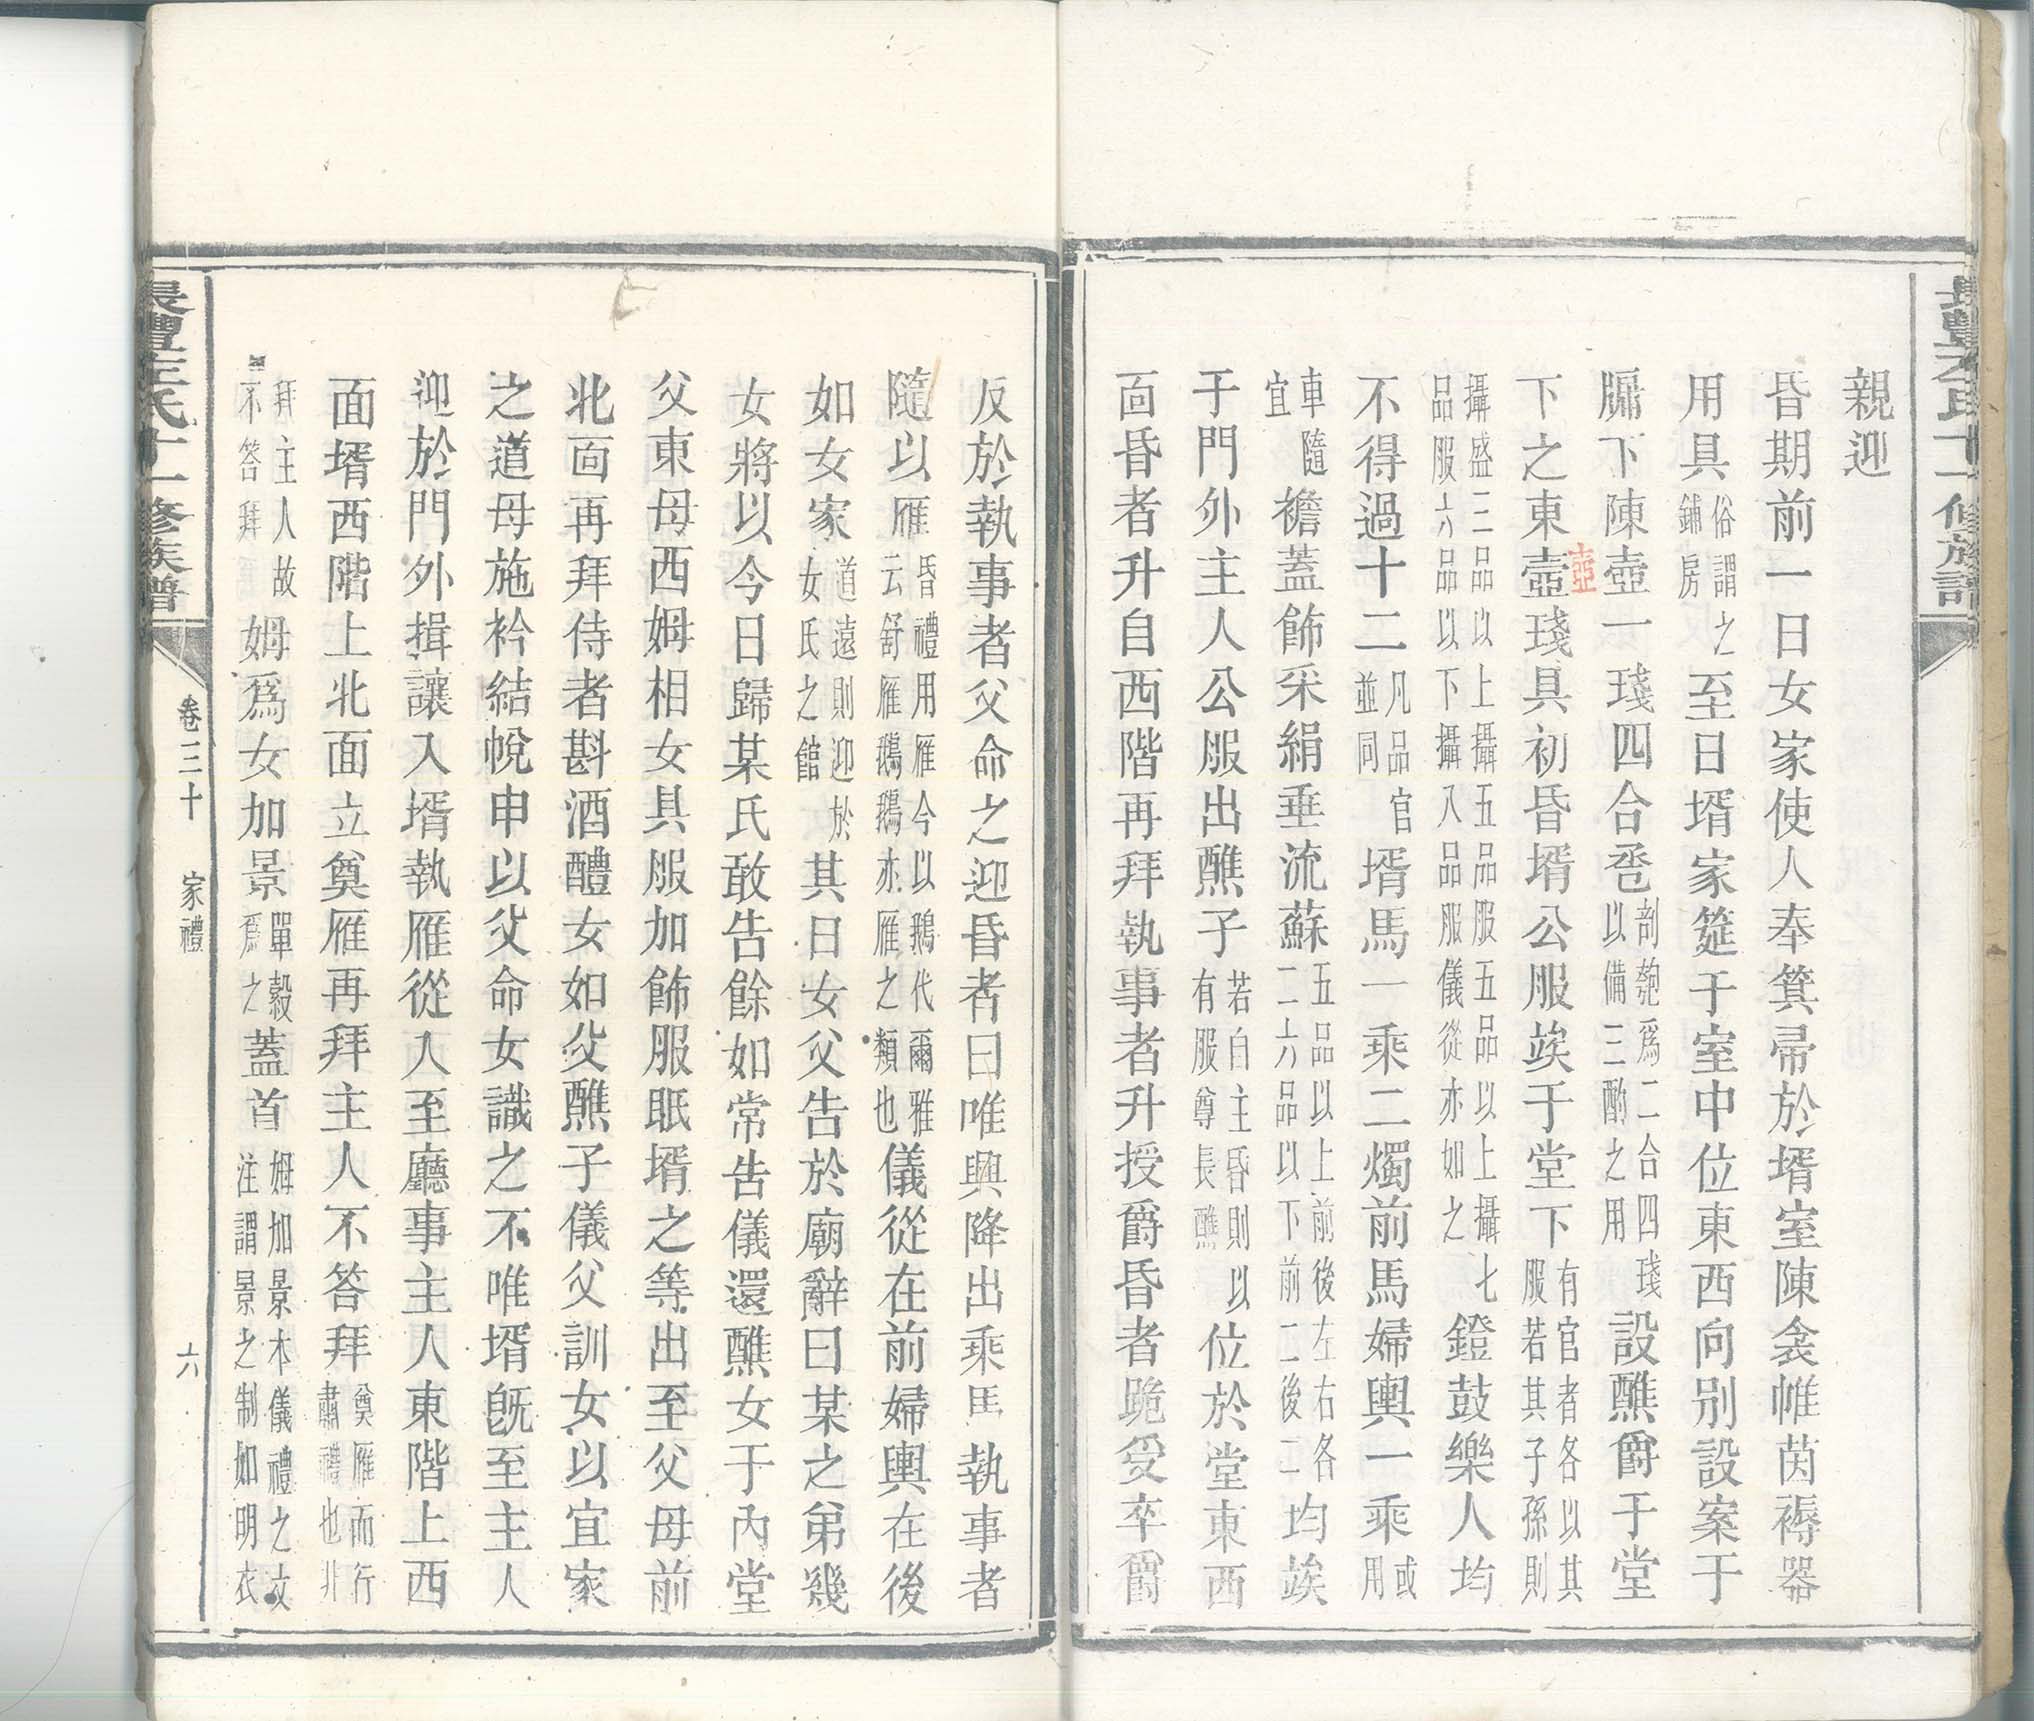 親迎
昏期前一日女家使人奉箕帚於壻室陳衾帷茵褥器
用具俗謂之鋪房至日壻家筵于室中位東西向别設案于
牖下陳壺一琖四合卺剖匏爲二合四琖以備三酳之用設醮爵于堂
下之東壺琖具初昏壻公服竢于堂下有官者各以其服若其子孫則
攝盛三品以上攝五品服五品以上攝七品服六品以下攝八品服儀從亦如之鐙鼓樂人均
不得過十二凡品官並同壻馬一乘二燭前馬婦輿一乘或用
車隨宜襜蓋飾采絹垂流蘇五品以上前後左右各二六品以下前二後二均竢
于門外主人公服出醮子若自主昏則以有服尊長醮位於堂東西
面昏者升自西階再拜執事者升授爵昏者跪受卒爵
壺
反於執事者父命之迎昏者曰唯興降出乘馬執事者
隨以雁昏禮用雁今以鵝代爾雅云舒雁鵝鵝亦雁之類也儀從在前婦輿在後
如女家道遠則迎於女氏之館其日女父告於廟辭曰某之弟幾
女將以今日歸某氏敢告餘如常告儀還醮女于內堂
父東母西姆相女具服加飾服眂壻之等出至父母前
北面再拜侍者斟酒醴女如父醮子儀父訓女以宜家
之道母施衿結帨申以父命女識之不唯壻既至主人
迎於門外揖讓入壻執雁從入至廳事主人東階上西
面壻西階上北面立奠雁再拜主人不答拜奠雁而行肅禮也非
拜主人故不答拜姆爲女加景單縠爲之蓋首姆加景本儀禮之文注謂景之制如明衣
長豐左氏十一修族譜
卷三十
家禮
六